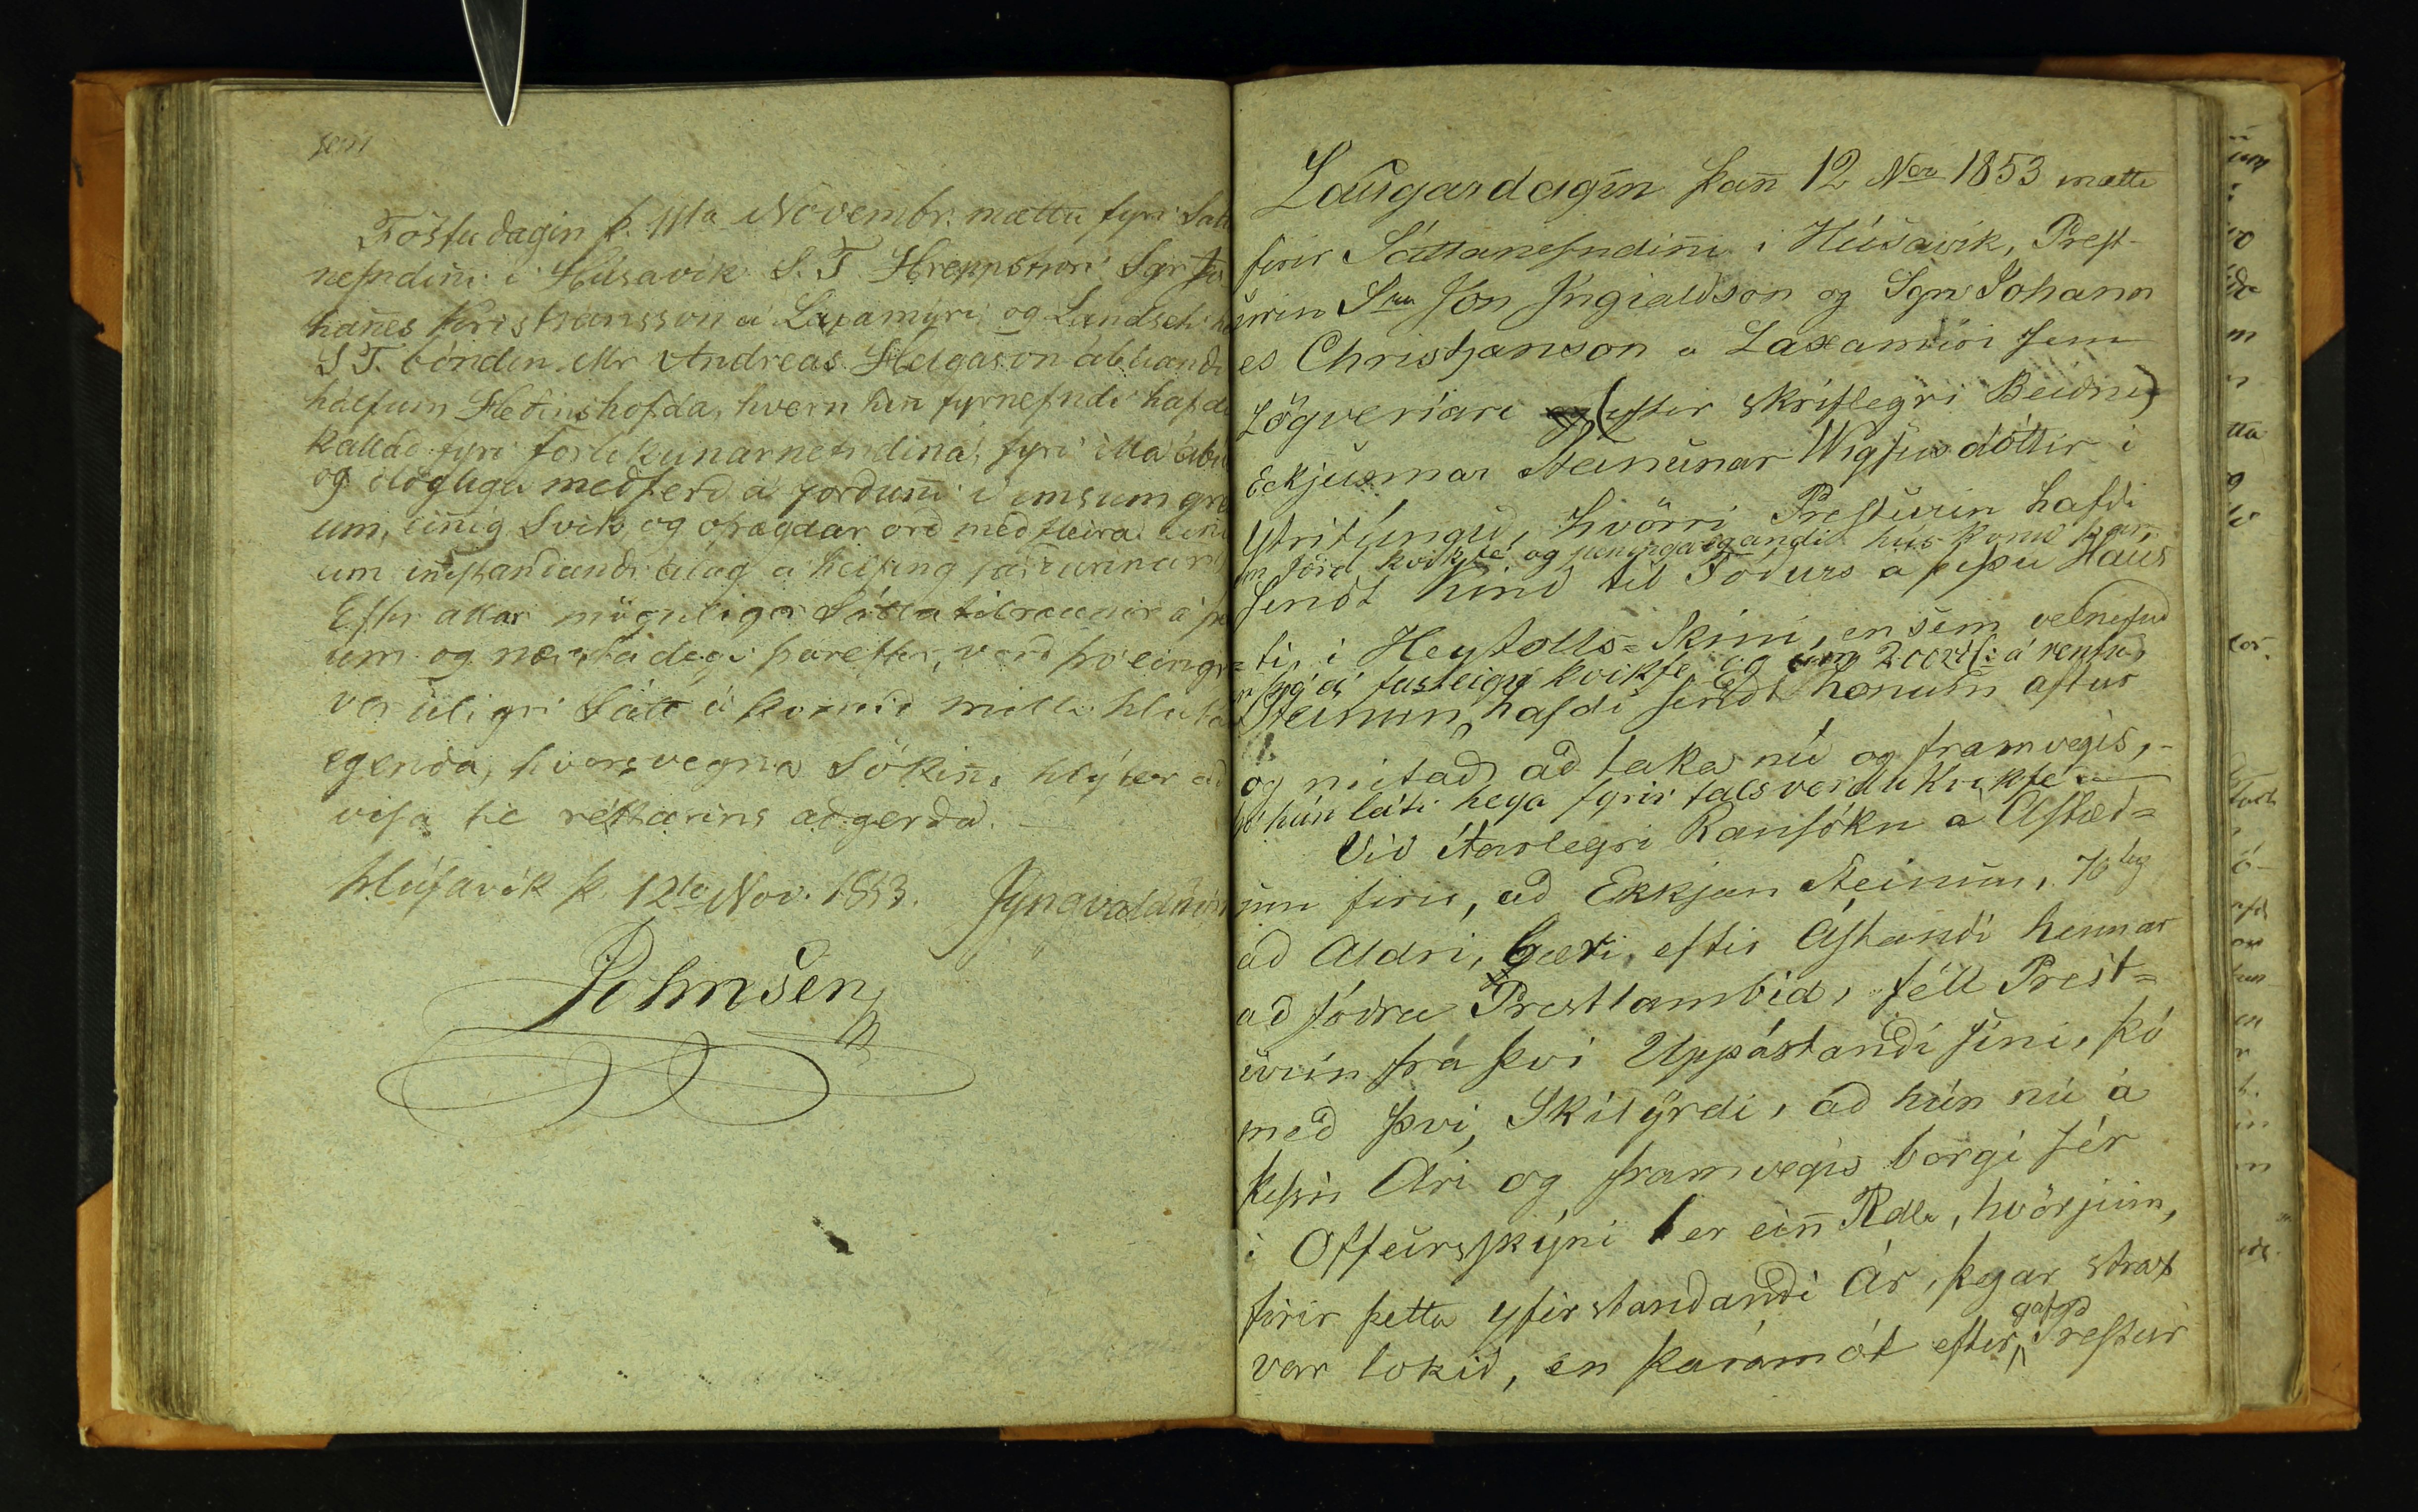 sem
Föstudagin þ. 11ta Novembr. mættu fyri Sátt
nefndiñi i Húsavik S. T. Hreppstiori Sgr Jo
hañes Kristiánsson á Laxamýri og Landseti h
S T. bóndin Mr Andreas Helgason ábúandi
hálfum Hedinshöfda, hvern hiñ fyrnefndi hafdi
kallad fyri forlikunarnefndina, fyri illa ábú
og ólögliga medferd á jörduni i imsum gre
um, eiñig Svik og ósægdar ord med fleira
um iñistandandi álag á helfing jardarinar
Eftir allar möguligar Sáttatilraunir á þe
um og næsta degi þareftir, vard þó eingri
veruligri Sátt á komid milli hlut
egenda, hvarsvegna Sökiñi hlýtur ad
visa til réttarins adgerda. –
Húsavík þ. 12ta Nov. 1853. JJyngvaldsson
Johnsen
Laugardagin þañ 12 Nov 1853 mætti
firir Sáttanefndiñi i Húsavik, Prest-
urin Sra Jon Jngialdson og Sgr Johann
es Christjanson a Laxamiri sem
Lögveriari (eftir skriflegri Beidni)
Eckjusmar Steinunar Wigfusdóttir i
Ytritúngu, hvörri Presturin hafdi
m jörd kvikfé og peninga egandi hús konu
sendt kind til Fódurs a þessu Haus
ti, i Heytolls-Skini, en sem velnefnd
kvikfe og um 200rd: á rentu
Steinun hafdi sendt honum aftur
og neitad ad taka nú og framvegis, -
þó hún láti heya fyrir talsverdu kvikfé
Vid ítarlegri Ransókn á Astæd=
um firir, ad Ekkjan Steinun, 70tug
ad Aldri, bæri, eftir Astandi hennar
ad fódra Prestlambid, féll Prest=
urin frá því Uppástandi sini, þó
med því Skilyrdi, ad hún nú á
þessu Ari og framvegis borgi sér
i Offursskýni er eiñ Rdl, hvörjum,
firir þetta yfirstandandi Ár, þegar strax
var lokid, en þarámót eftir gafgd Prestur